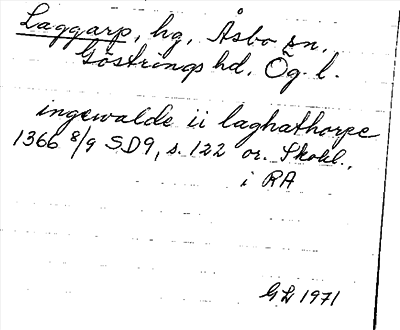 Laggarp, hg, Åsbo sn,
Göstrings hd, Ög. l.
ingewalde ii laghathorpe
1366 8/9 SD9, s. 122 or. Skokl.,
i RA
GL 1971